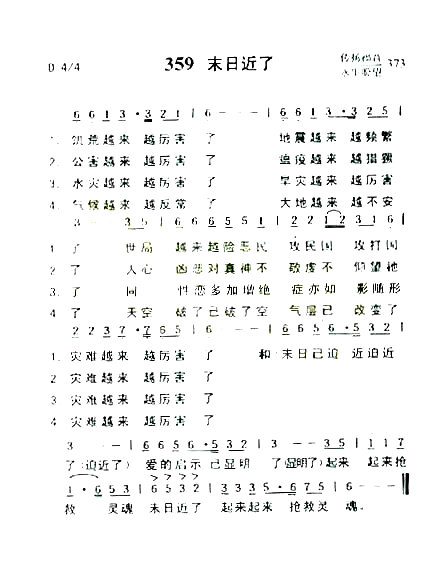 359 末日近了
D 4/4
373
6 6 1 3 · 3 2 1 | 6 - - - | 6 6 1 3 · 3 2 1
1. 饥荒越来 越厉害 了 地震越来 越频繁
2. 公害越来 越厉害 了 瘟疫越来 越猖獗
3. 水灾越来 越厉害 了 旱灾越来 越厉害
4. 气候越来 越反常 了 大地越来 越不安
1 了 世局 越来越险恶民 攻民国 攻打国
2 了 人心 凶恶对真神不 敬虔不 仰望祂
3. 了 同 性恋多加增绝 症亦如 影随形
4 了 天空 破了已破了空 气层已 改变了
2 2 2 3 · 7 · 6 5 | 6 - -
1 灾难越来 越厉害 了 和 末日已迫 近迫近
2 灾难越来 越厉害 了
3 灾难越来 越厉害 了
4 灾难越来 越厉害 了
3 - - | 6 6 5 6 · 5 3 2 | 3 - - 3 5 | 1 1 7
了(迫近了) 爱的启示 已显明 了(显明了)起来 起来抢
1 · 6 5 3 | 6 5 1 6 | 3 3 3 5 · 6 7 5 | 6 - -
救 灵魂 末日近了 起来起来 抢救灵 魂.